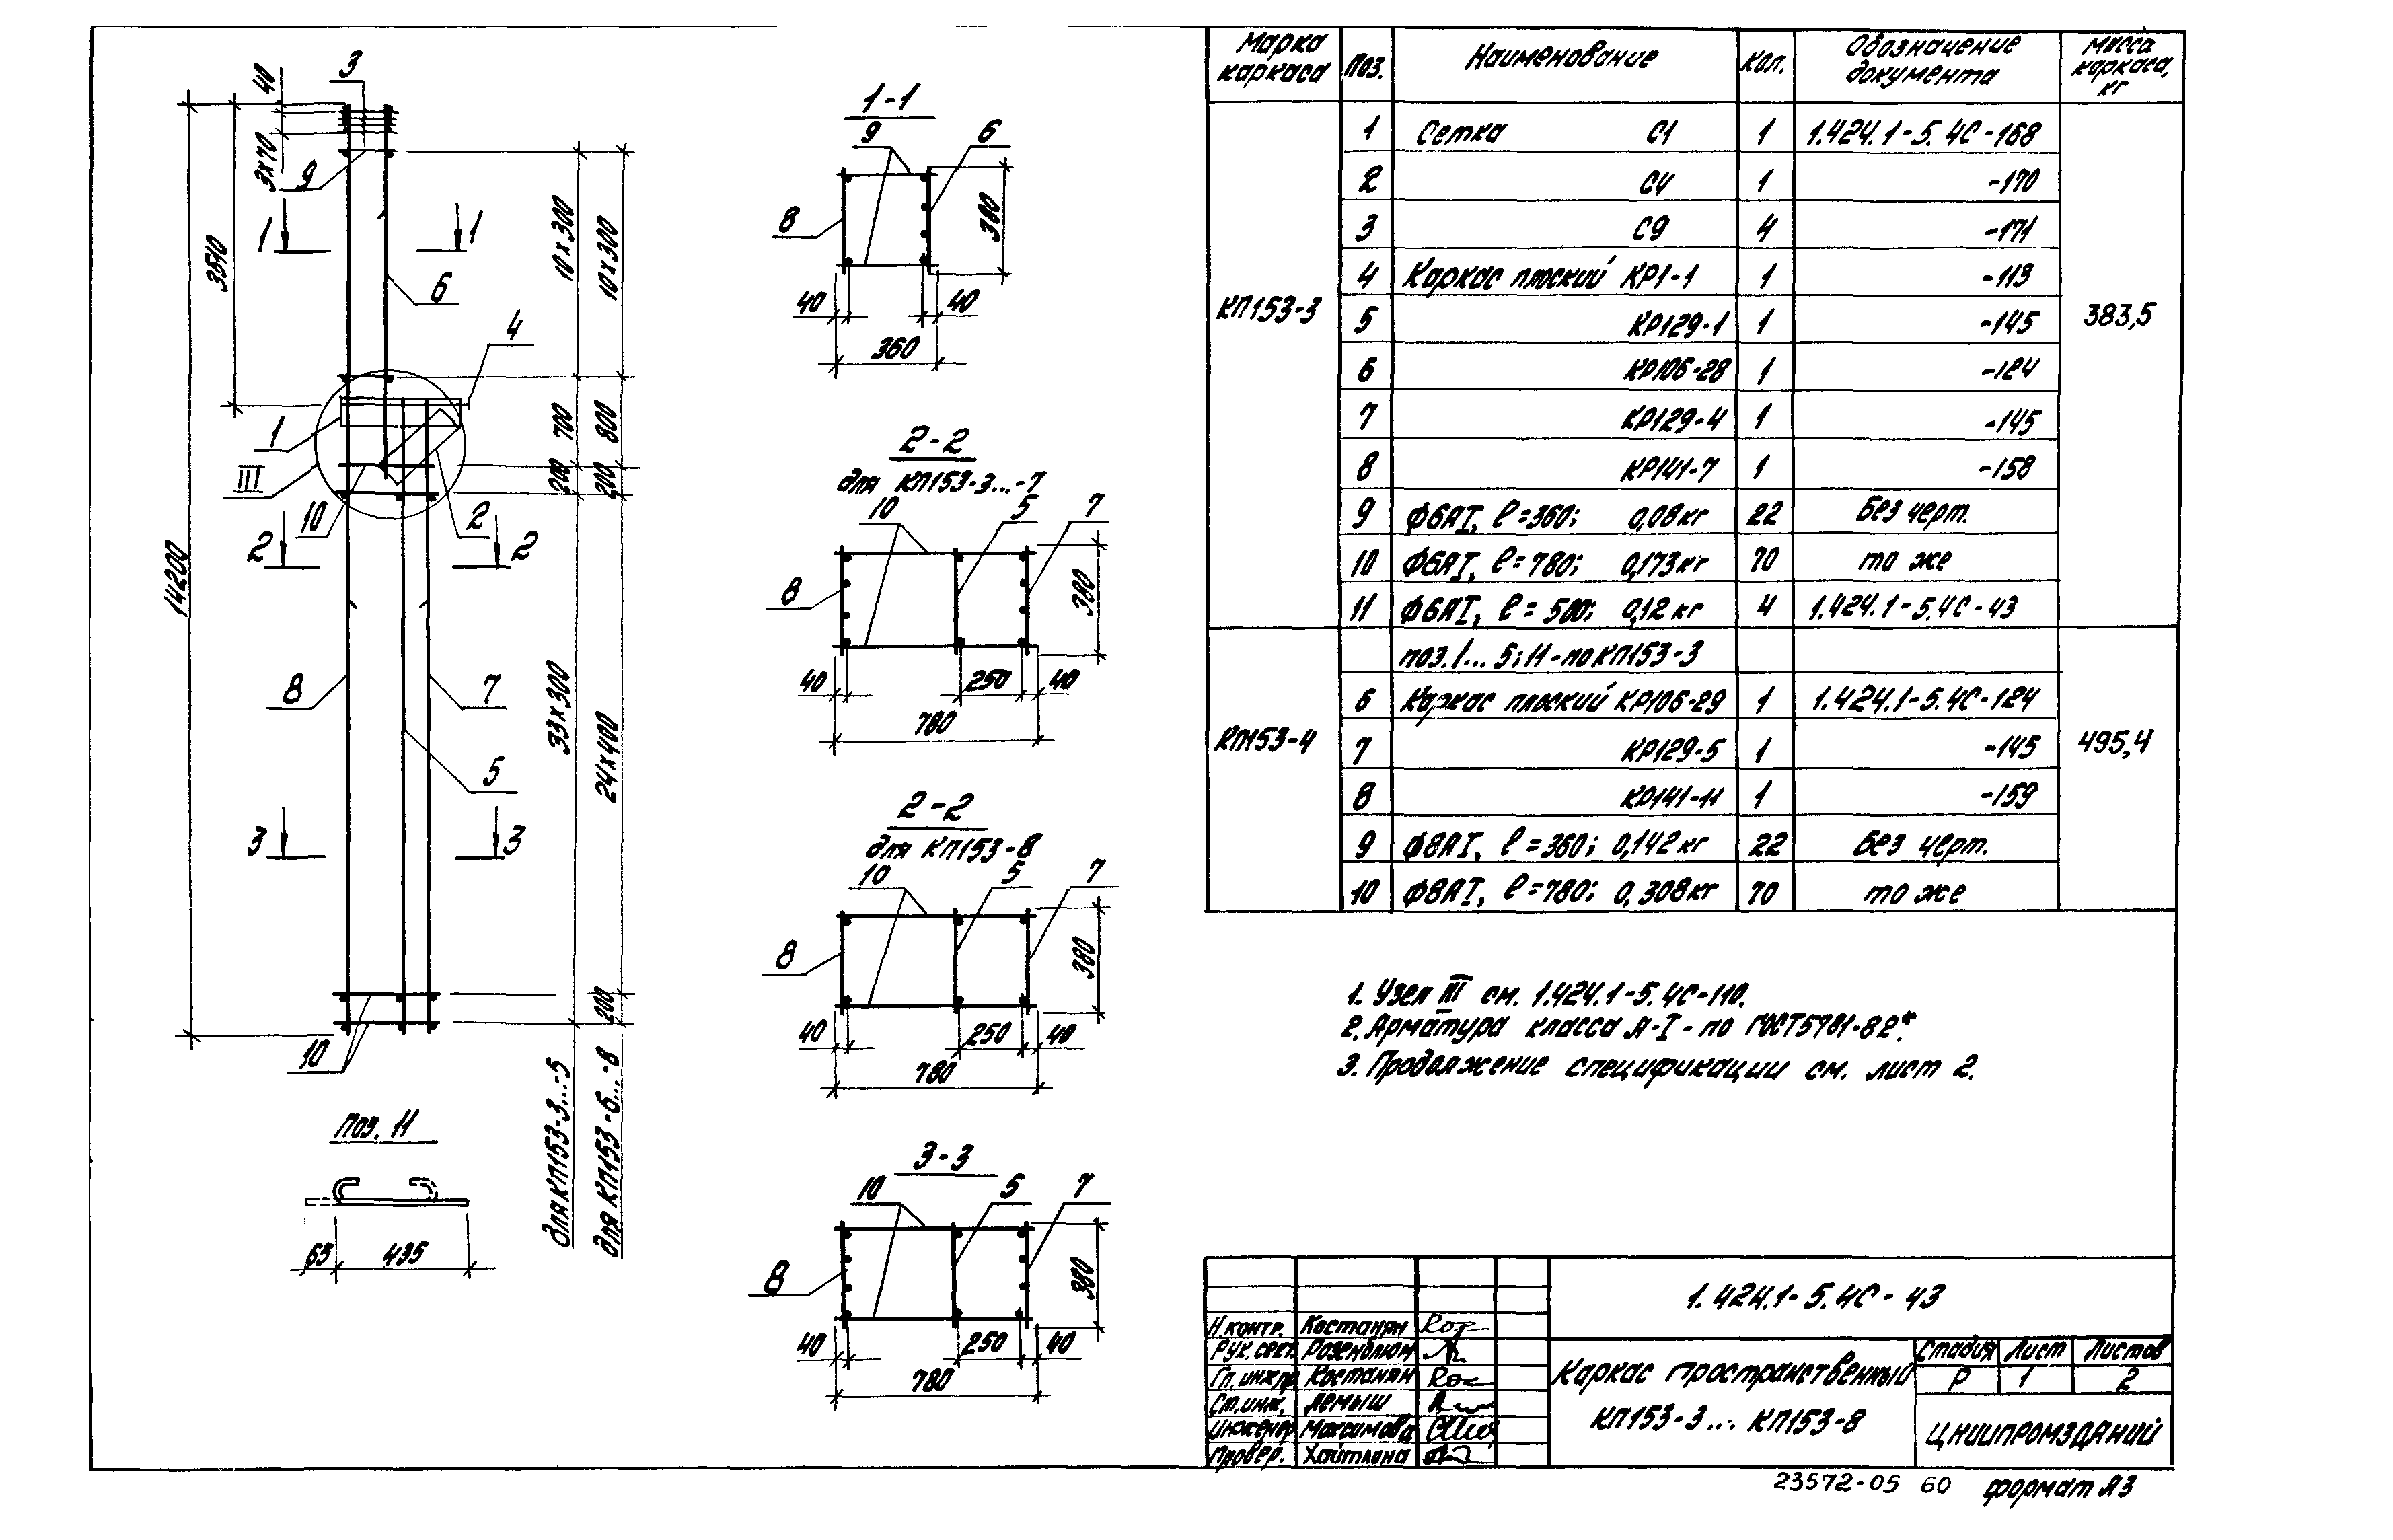 Марка каркаса Поз. Наименование Кол. Обозначение документа Масса каркаса, кг
КП153-3 383,5
1 Сетка С1 1 1.424.1-5.4С-168
2 С4 1 -170
3 С9 4 -171
4 Каркас плоский КР1-1 1 -113
5 КР129-1 1 -145
6 КР106-28 1 -124
7 КР129-4 1 -145
8 КР141-7 1 -158
9 Ф6АI, ℓ=360; 0,08кг 22 Без черт.
10 Ф6АI, ℓ=780; 0,173кг 70 то же
11 Ф6АI, ℓ=500; 0,12кг 4 1.424.1-5.4С-43
КП153-4 495,4
поз.1...5;11-по КП153-3
6 Каркас плоский КР106-29 1 1.424.1-5.4С-124
7 КР129-5 1 -145
8 КР141-11 1 -159
9 Ф8АI, ℓ=360; 0,142кг 22 Без черт.
10 Ф8АI, ℓ=780; 0,308кг 70 то же
40
3
3х70
9
1 1
3510
6
10х300
10х300
4
1
III
700
800
200
200
10
2
2 2
14200
8
7
33х300
24х400
5
3 3
200
10
для КП153-3...-5
для КП153-6...-8
Поз. 11
65 435
1-1
9 6
8
380
40 40
360
2-2
для КП153-3...-7
10 5 7
8
380
40 250 40
780
2-2
для КП153-8
10 5 7
8
380
40 250 40
780
3-3
10 5 7
8
380
40 250 40
780
1. Узел III см. 1.424.1-5.4С-110.
2. Арматура класса А-I - по ГОСТ5781-82*.
3. Продолжение спецификации см. лист 2.
1.424.1-5.4С-43
Н.контр. Костанян
Рук.сект. Розенблюм
Гл.инж.пр. Костанян
Ст.инж. Демыш
Инженер Максимова
Провер. Хайтлина
Каркас пространственный
КП153-3... КП153-8
Стадия Лист Листов
Р 1 2
ЦНИИПРОМЗДАНИЙ
23572-05 60 формат А3